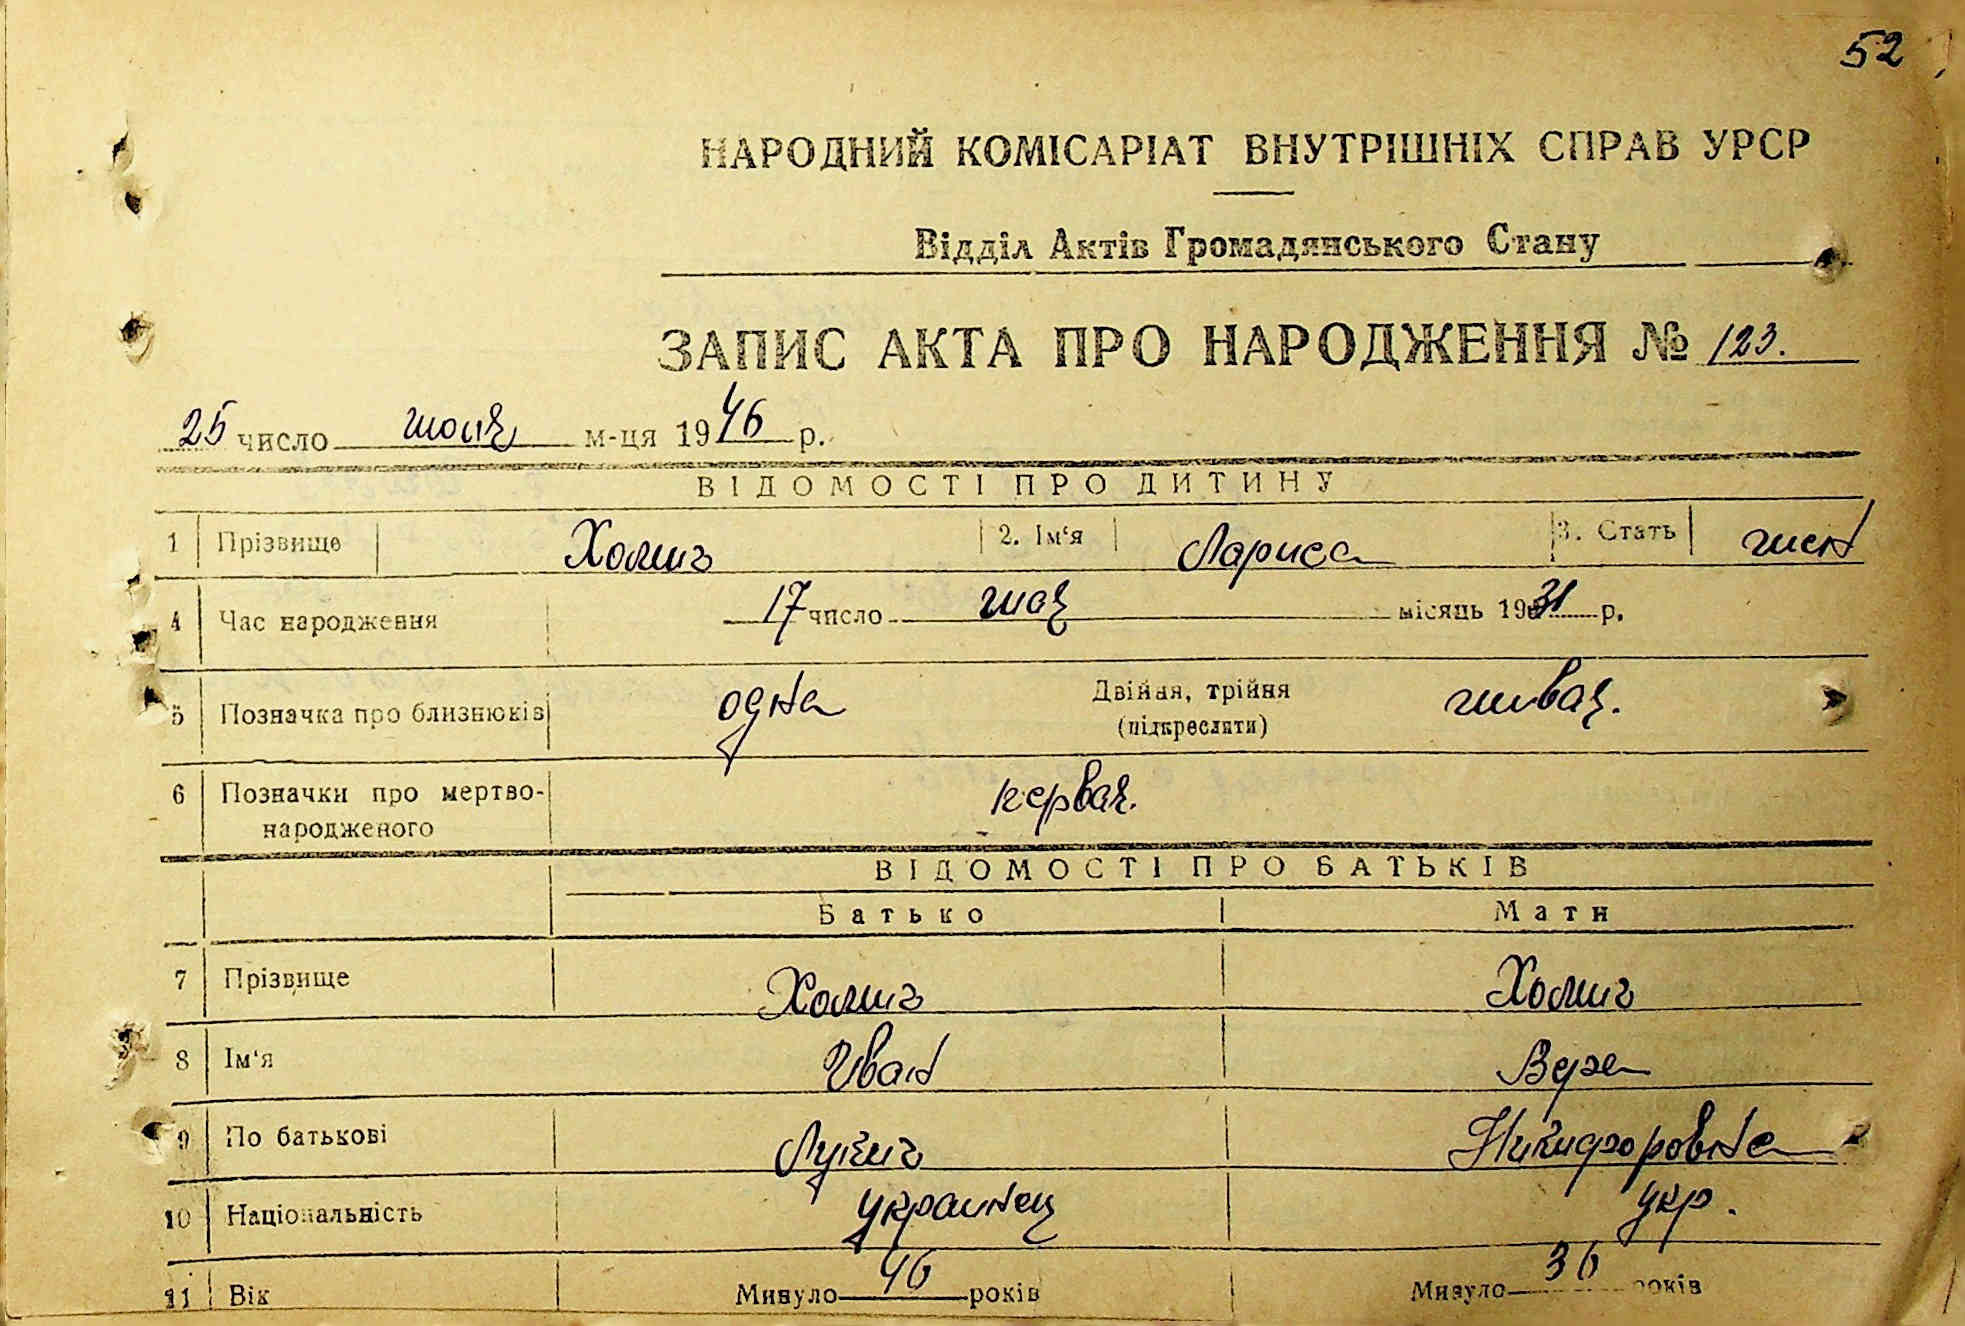 52
НАРОДНИЙ КОМІСАРІАТ ВНУТРІШНІХ СПРАВ УРСР
Відділ Актів Громадянського Стану
ЗАПИС АКТА ПРО НАРОДЖЕННЯ № 123.
25 число июля м-ця 1946 р.
ВІДОМОСТІ ПРО ДИТИНУ
1 Прізвище Холин 2. Ім'я Лариса 3. Стать жен
4 Час народження 17 число мая місяць 1931 р.
5 Позначка про близнюків одна Двійня, трійня живая.
(підкреслити)
6 Позначки про мертво-
народженого первая.
ВІДОМОСТІ ПРО БАТЬКІВ
Батько Мати
7 Прізвище Холин Холин
8 Ім'я Иван Вера
9 По батькові Лукич Никифоровна
10 Національність украинец укр.
11 Вік Минуло 46 років Минуло 36 років